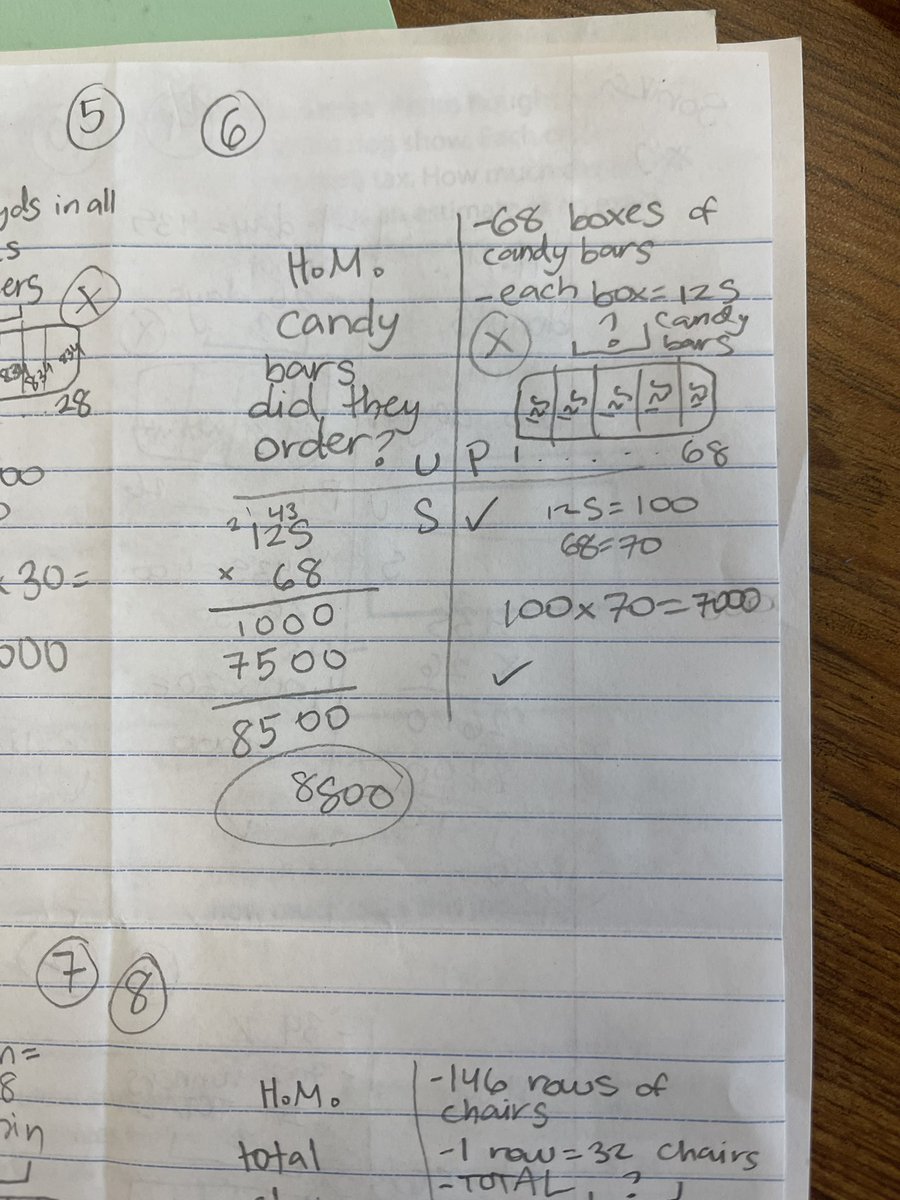 5
6
yds in all
ers
X
28
00
x 30=
000
H.M.
candy
bars
did they
order?
U
-68 boxes of
candy bars
-each box=125
X
? candy
bars
125 125 125 125 125
P 1 . . . . . . 68
2 1 43
125
x 68
1000
7500
8500
8500
S
✓ 125=100
68=70
100x70=7000
✓
7
8
n=
8
H.M.
total
-146 rows of
chairs
-1 row=32 chairs
-TOTAL ?